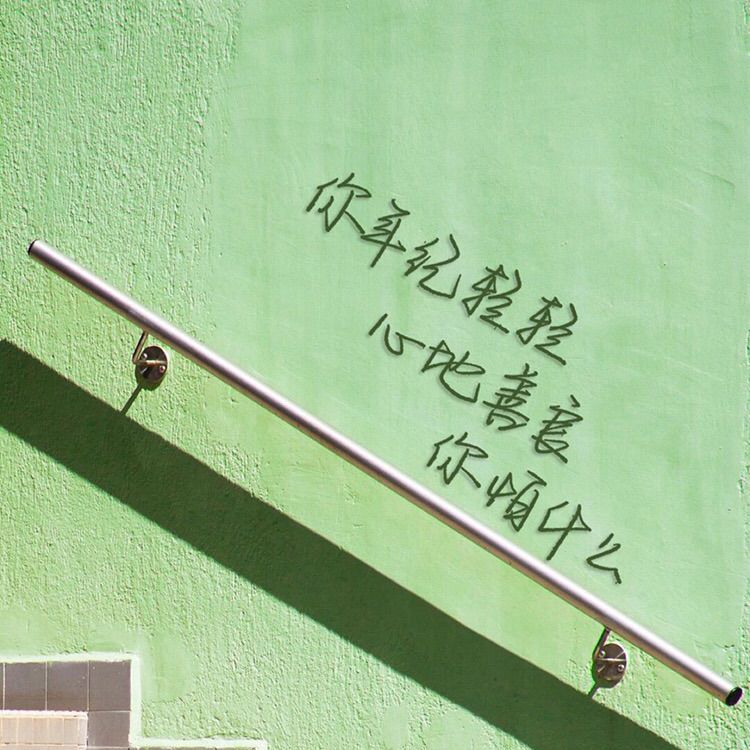 你年纪轻轻
心地善良
你烦什么